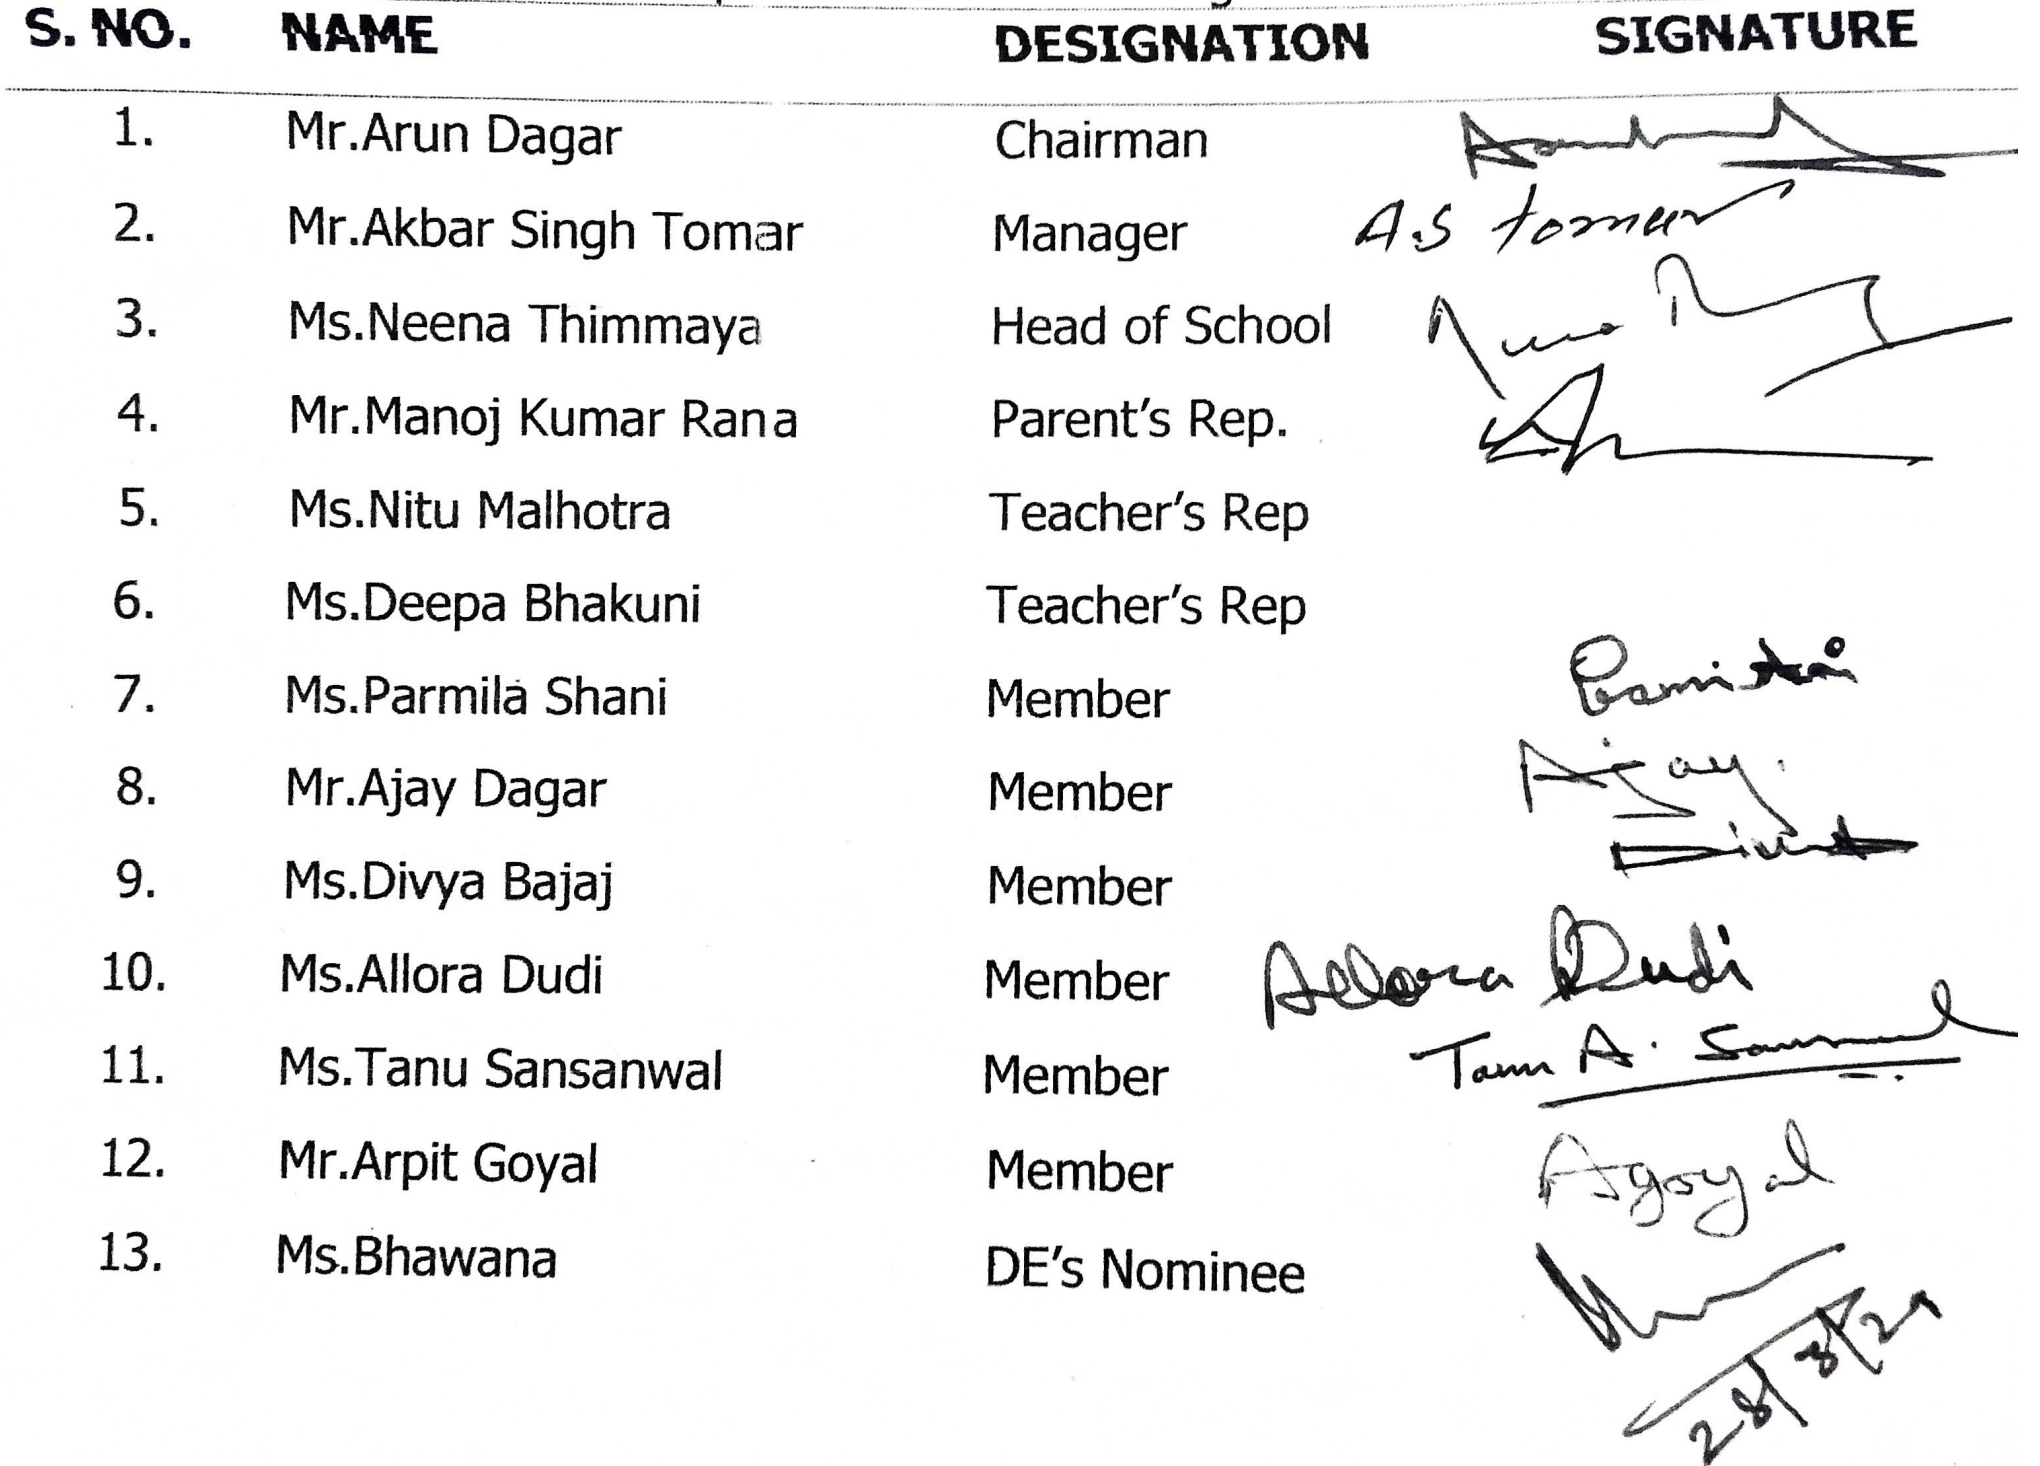 S. NO. NAME DESIGNATION SIGNATURE
1. Mr.Arun Dagar Chairman
2. Mr.Akbar Singh Tomar Manager A.S Tomar
3. Ms.Neena Thimmaya Head of School
4. Mr.Manoj Kumar Rana Parent's Rep.
5. Ms.Nitu Malhotra Teacher's Rep
6. Ms.Deepa Bhakuni Teacher's Rep
7. Ms.Parmila Shani Member
8. Mr.Ajay Dagar Member Ajay.
9. Ms.Divya Bajaj Member
10. Ms.Allora Dudi Member Allora Dudi
11. Ms.Tanu Sansanwal Member Tanu A.
12. Mr.Arpit Goyal Member Agoyal
13. Ms.Bhawana DE's Nominee